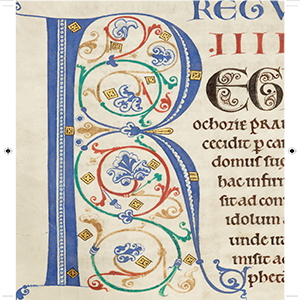 R
REGV
IIII
ochozie pra
cecidit p ca
domus sue
hac infir
sit ad con
idolum
unde
misit